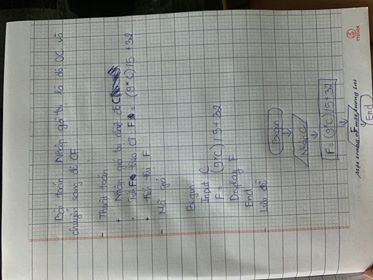 Bài toán Nhập giá trị độ C và
chuyển sang độ F
- Thuật toán
+ Nhập giá trị độ C
+ Tính F theo CT F = (9*C)/5+32
+ Hiển thị F
- Mã giả
Begin
Input C
F = (9*C)/5+32
Display F
End
- Lưu đồ
Begin
Nhập C
F = (9*C)/5+32
End